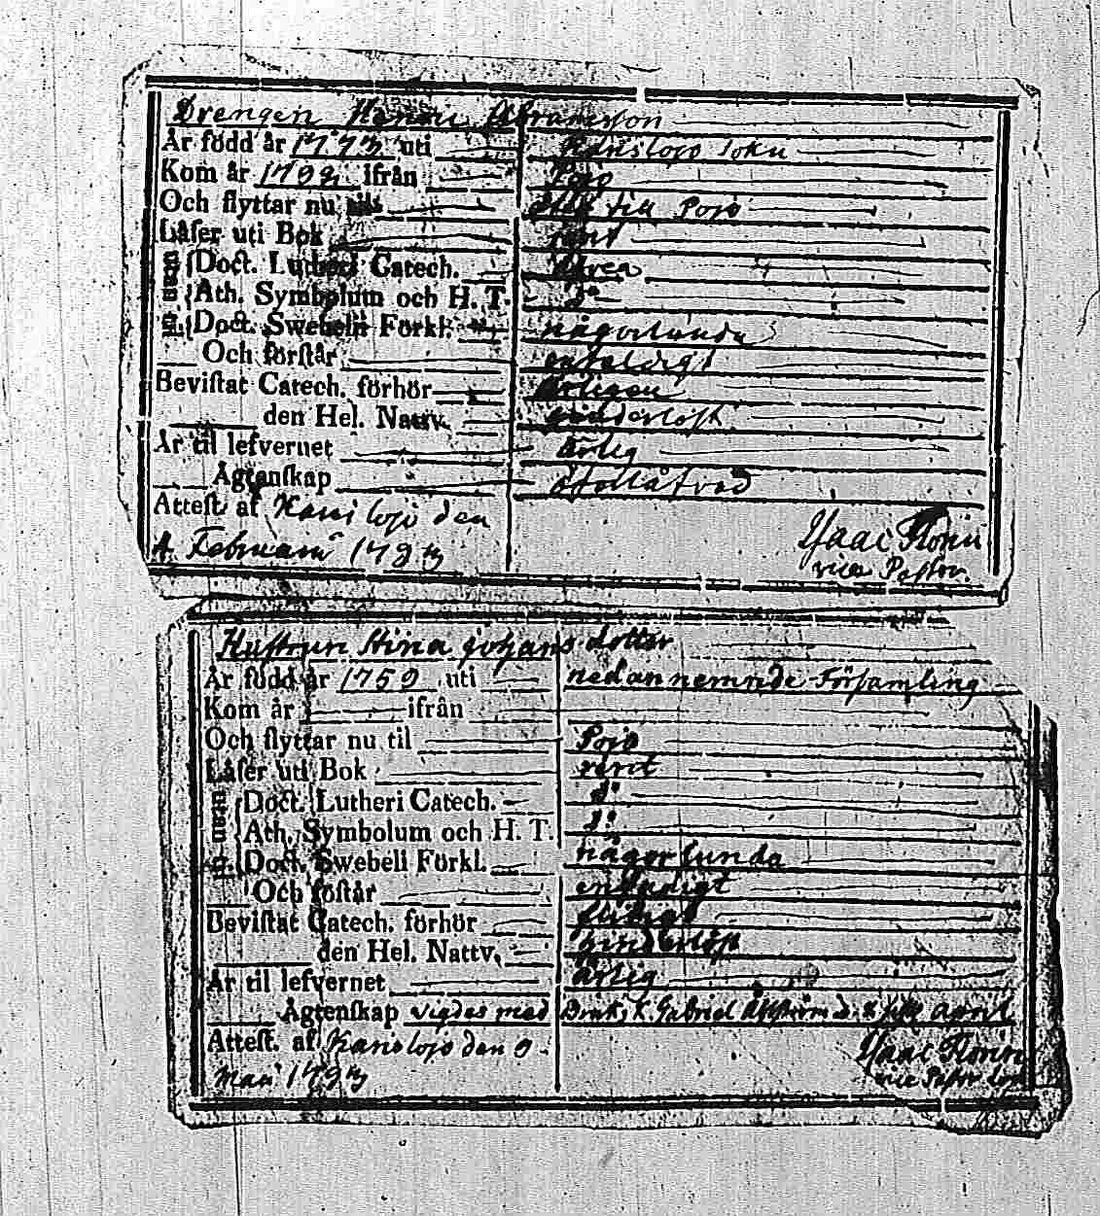 Drengen Henric Abramsson
År född år 1773 uti Karislojo Sokn
Kom år 1792 ifrån Pojo
Och flyttar nu till Pojo
Låser uti Bok rent
Doct. Lutheri Catech.
Ath. Symbolum och H. T. d:o
Doct. Swebelii Förkl. någorlunda
Och förstår enfaldigt
Beviſtat Catech. förhör årligen
den Hel. Nattv. hinderlöst
År til lefvernet ärlig
Ågtenſkap
Atteſt. af Karislojo den
Februarii 1793
Isaac Florin
vice Pastor.
Hustrun Stina Johansdotter
År född år 1759 uti nedannemnde Församling
Kom år ifrån
Och flyttar nu til Pojo
Låſer uti Bok rent
Doct. Lutheri Catech. d:o
Ath. Symbolum och H. T. d:o
Doct. Swebeli Förkl. någorlunda
Och föſtår enfaldigt
Beviſtat Catech. förhör flitigt
den Hel. Nattv. hinderlöst
År til lefvernet ärlig
Ågtenſkap vigdes med Gabriel April
Atteſt. af Karislojo den 9
Maii 1793
Isaac Florin
vice Pastor